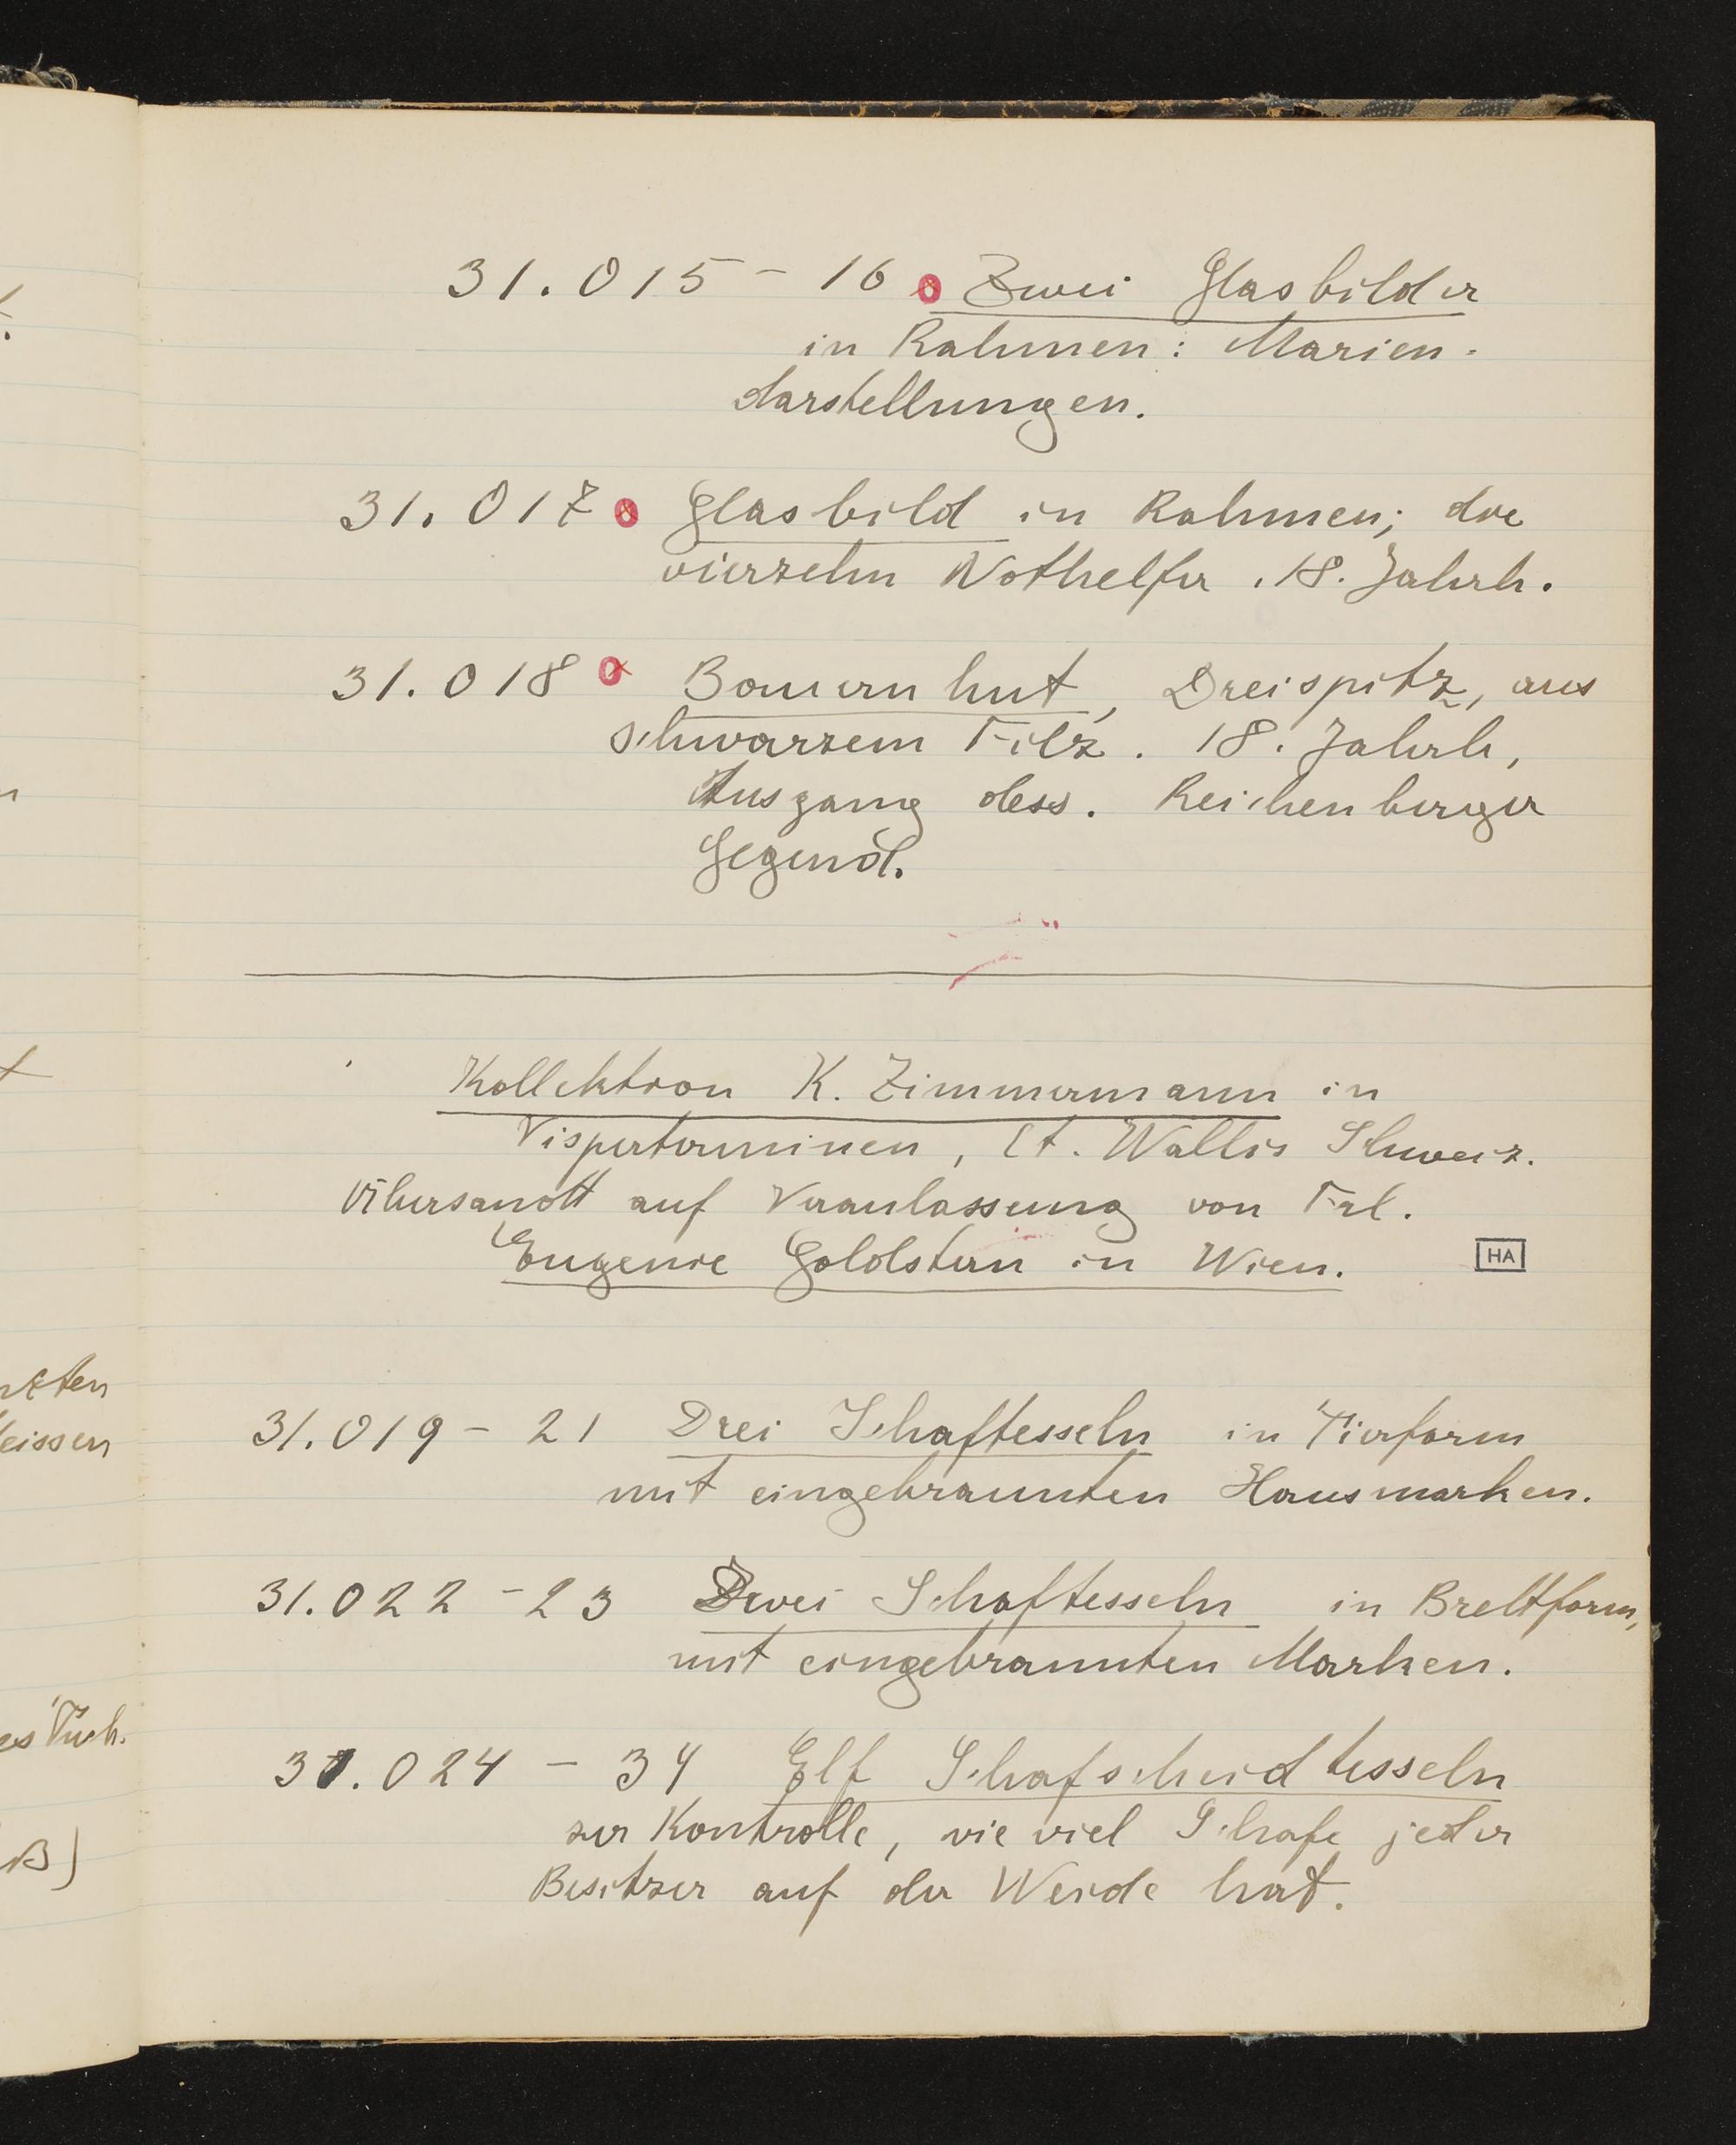 31.015 - 16 Zwei Glasbilder
in Rahmen: Marien-
darstellungen.
31.017 Glasbild in Rahmen; die
vierzehn Nothelfer. 18. Jahrh.
31.018 Bauernhut, Dreispitz, aus
schwarzem Filz. 18. Jahrh,
Ausgang dess. Reichenberger
Gegend.
Kollektion K. Zimmermann in
Visperterminen, Ct. Wallis Schweiz.
übersandt auf Veranlassung von Frl.
Eugenie Goldstern in Wien.
HA
31.019 - 21 Drei Schaftesseln in Tierform
mit eingebrannten Hausmarken.
31.022 - 23 Zwei Schaftesseln in Brettform,
mit eingebrannten Marken.
31.024 - 34 Elf Schafscheidtesseln
zur Kontrolle, wie viel Schafe jeder
Besitzer auf der Weide hat.
eissen
B)